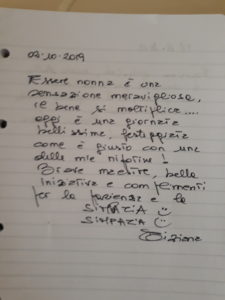 02-10-2019
Essere nonna è una
sensazione meravigliosa,
il bene si moltiplica....
oggi è una giornata
bellissima, festeggiata
come è giusto con una
delle mie nipotine!
Brave maestre, bella
iniziativa e complimenti
per la pazienza e la
SIMPATIA
SIMPATIA
Tiziana